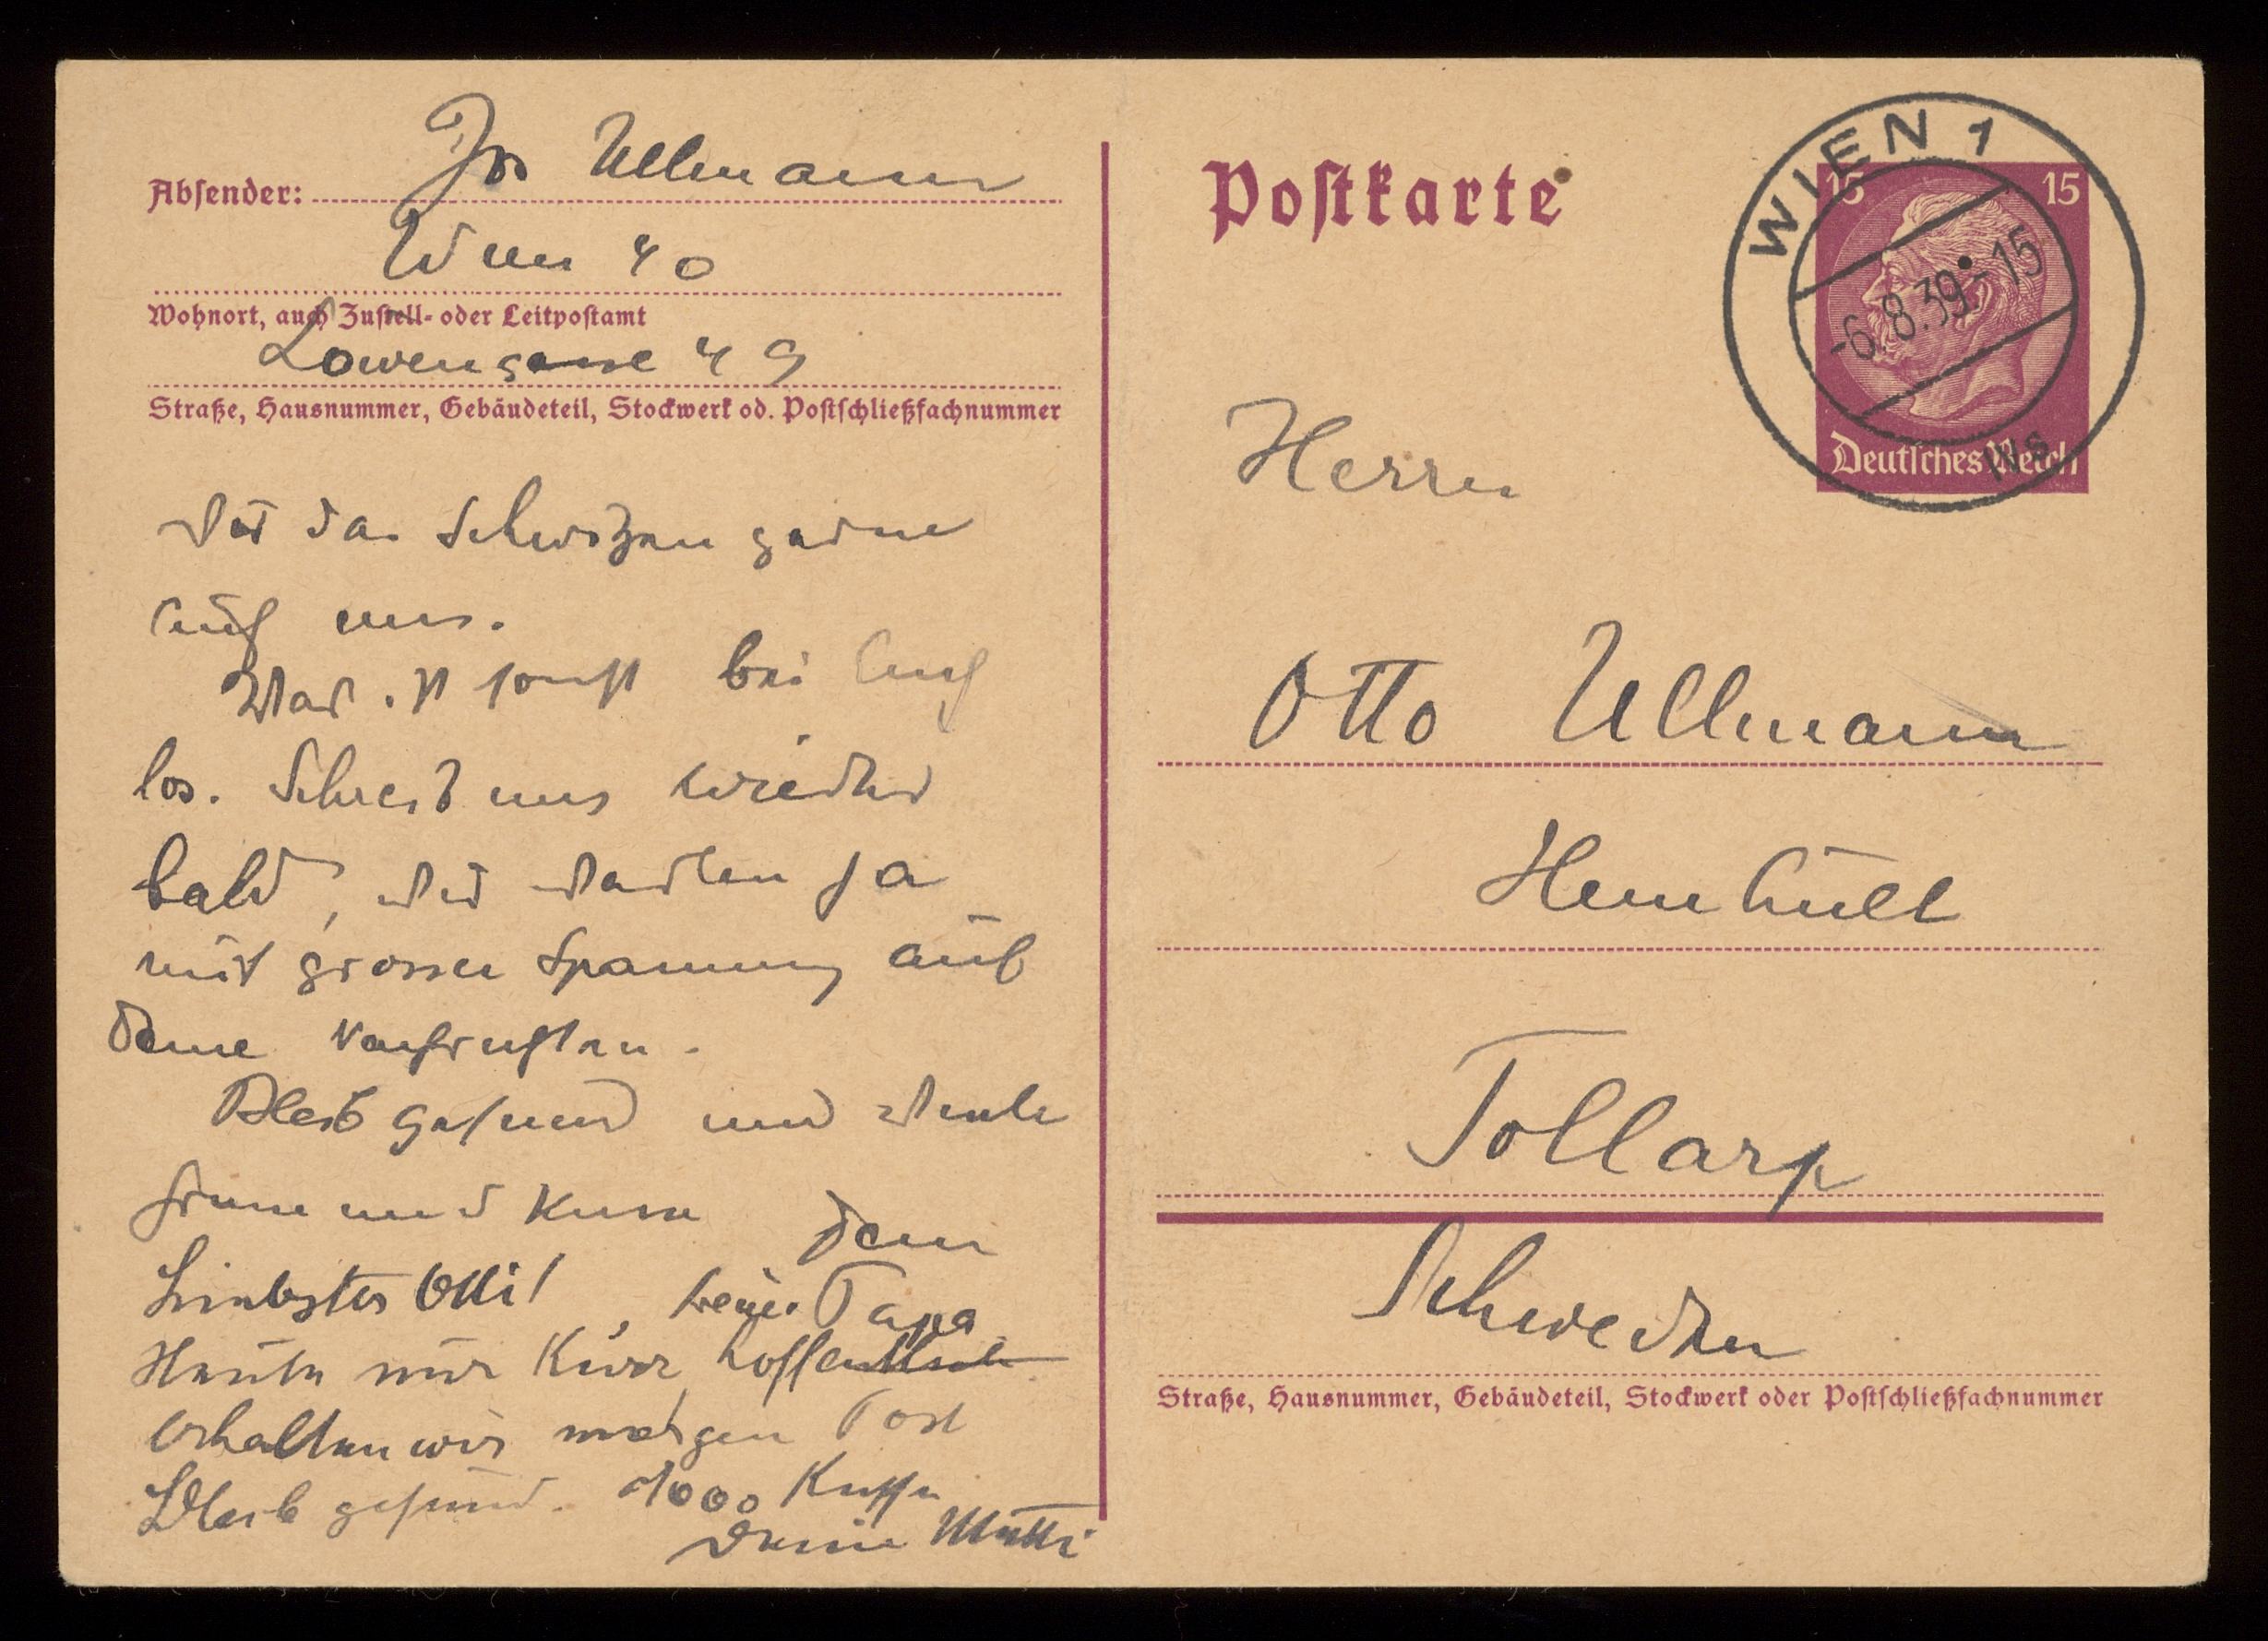 Absender: Jos Ullmann
Wien 40
Wohnort, auch Zustell- oder Leitpostamt
Löwengasse 49
Straße, Hausnummer, Gebäudeteil, Stockwerk od. Postschließfachnummer
das Schwitzen gerne
auf uns.
Was ist sonst bei Euch
los. Schreib uns wieder
bald, wir warten ja
mit grosser Spannung auf
Deine Nachrichten.
Bleib gesund und viele
Grüsse und Küsse Dein
treuer Papa
Liebster Otti!
Heute nur kurz, hoffentlich
erhalten wir morgen Post
Bleib gesund. 1000 Küsse
Deine Mutti
Postkarte
WIEN 1
-6.8.39.-15
15 15
Deutsches Reich
Herrn
Otto Ullmann
Tollarp
Schweden
Straße, Hausnummer, Gebäudeteil, Stockwerk oder Postschließfachnummer